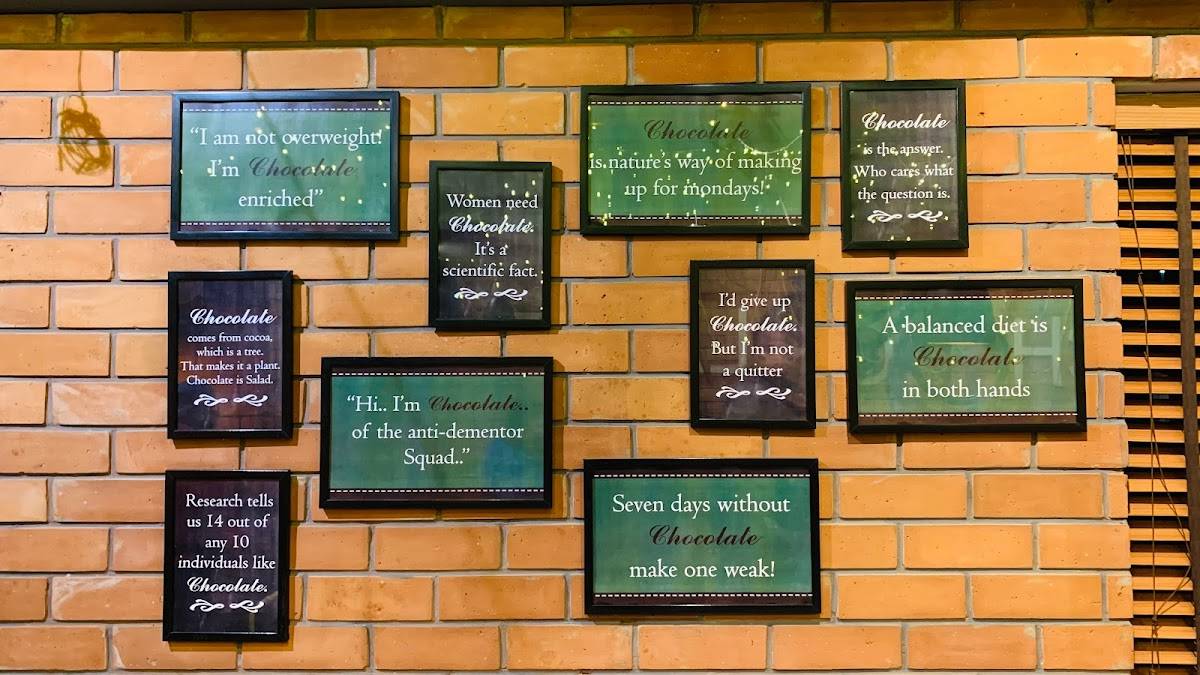 “I am not overweight!
I’m Chocolate
enriched”
Women need
Chocolate.
It's a
scientific fact.
Chocolate
is nature's way of making
up for mondays!'
Chocolate
is the answer.
Who cares what
the question is.
Chocolate
comes from cocoa,
which is a tree.
That makes it a plant.
Chocolate is Salad.
“Hi.. I’m Chocolate..
of the anti-dementor
Squad..”
I'd give up
Chocolate.
But I'm not
a quitter
A balanced diet is
Chocolate
in both hands
Research tells
us 14 out of
any 10
individuals like
Chocolate.
Seven days without
Chocolate
make one weak!